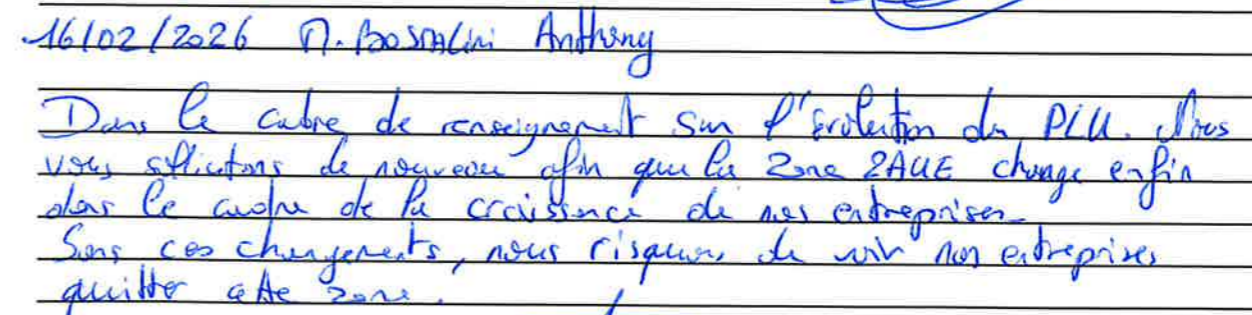 16/02/2026 M. Anthony
Dans le cadre de renseignement sur l'évolution du PLU. Nous
vous sollicitons de nouveau afin que la Zone 2AUE change enfin
dans le cadre de la croissance de nos entreprises.
Sans ces changements, nous risquons de voir nos entreprises
quitter cette zone.